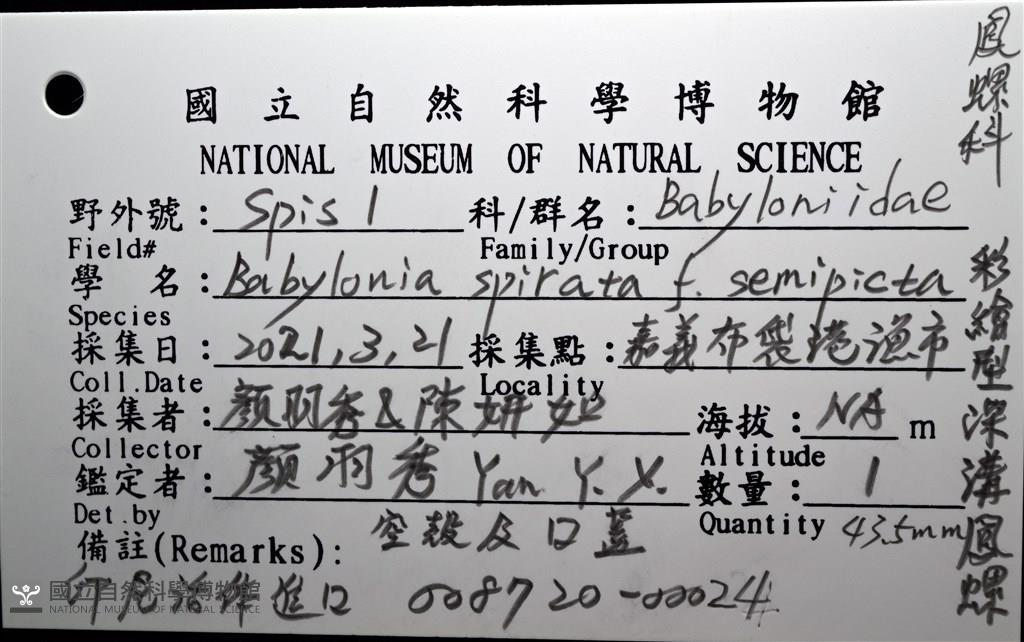 國立自然科學博物館
NATIONAL MUSEUM OF NATURAL SCIENCE
野外號: Spis 1 科/群名: Babyloniidae
Field# Family/Group
學 名: Babylonia spirata f. semipicta
Species
採集日: 2021,3,21 採集點: 嘉義布袋港漁市
Coll.Date Locality
採集者: 顏羽秀&陳妍如 海拔: NA m
Collector Altitude
鑑定者: 顏羽秀 Yan Y. X. 數量: 1
Det.by Quantity 43.5mm
備註(Remarks): 空殼及口蓋
進口 008720-00024
鳳螺科
彩繪型深溝鳳螺
國立自然科學博物館
NATIONAL MUSEUM OF NATURAL SCIENCE